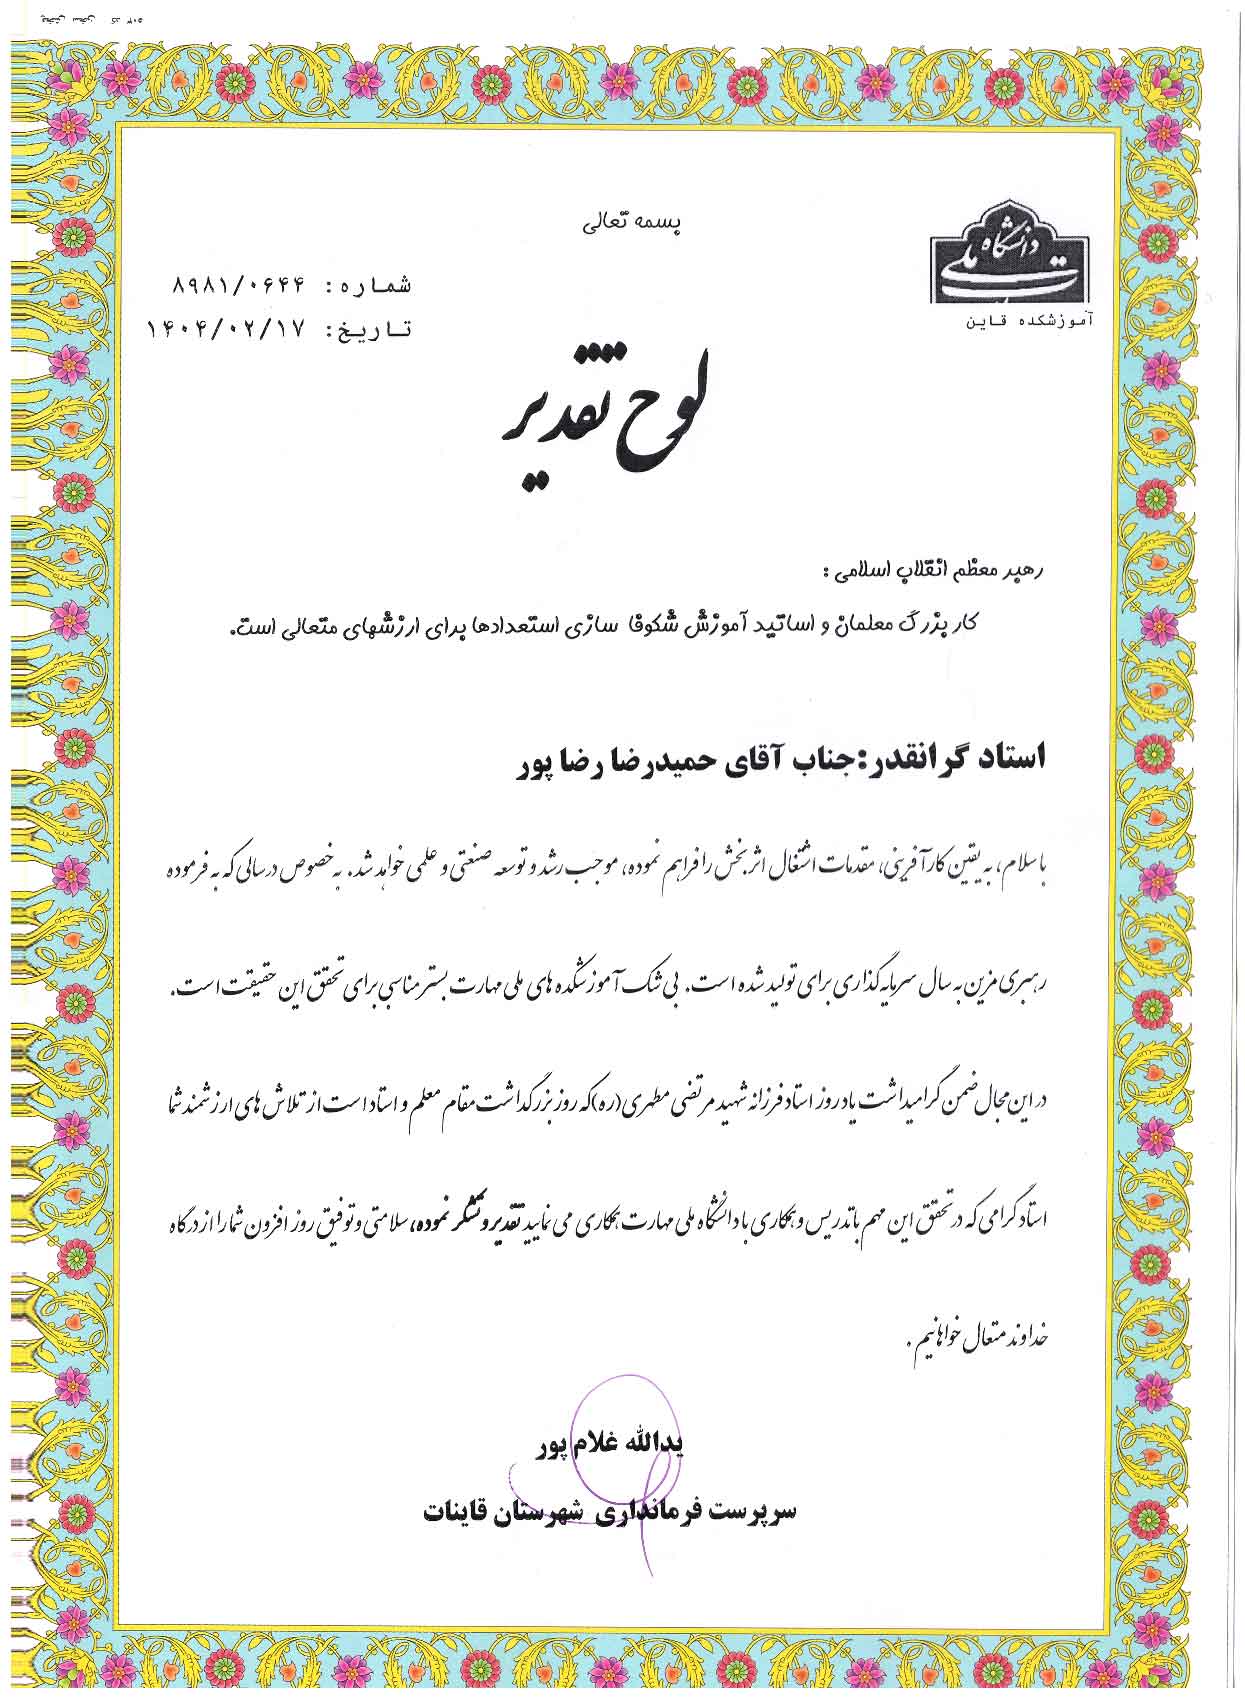 بسمه تعالی
دانشگاه ملی
آموزشکده قاین
شماره: ۸۹۸۱/۰۶۴۴
تاریخ: ۱۴۰۴/۰۲/۱۷
لوح تقدیر
رهبر معظم انقلاب اسلامی :
کار بزرگ معلمان و اساتید آموزش شکوفا سازی استعدادها برای ارزشهای متعالی است.
استاد گرانقدر:جناب آقای حمیدرضا رضا پور
با سلام، به یقین کارآفرینی، مقدمات اشتغال اثربخش را فراهم نموده، موجب رشد و توسعه صنعتی و علمی خواهد شد. به خصوص در سالی که به فرموده
رهبری مزین به سال سرمایه گذاری برای تولید شده است. بی شک آموزشکده های ملی مهارت بستر مناسبی برای تحقق این حقیقت است.
در این مجال ضمن گرامیداشت یاد روز استاد فرزانه شهید مرتضی مطهری(ره)که روز بزرگداشت مقام معلم و استاد است از تلاش های ارزشمند شما
استاد گرامی که در تحقق این مهم با تدریس و همکاری با دانشگاه ملی مهارت همکاری می نمایید تقدیر و تشکر نموده، سلامتی و توفیق روز افزون شما را از درگاه
خداوند متعال خواهانیم .
یدالله غلام پور
سرپرست فرمانداری شهرستان قاینات